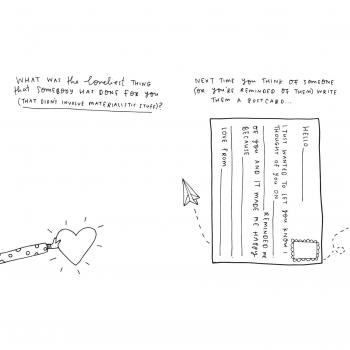 WHAT WAS the loveliest THING
that SOMEBODY HAS DONE FOR YOU
(THAT DIDN'T INVOLVE MATERIALISTIC STUFF)?
NEXT TIME YOU THINK OF SOMEONE
(OR YOU'RE REMINDED OF THEM) WRITE
THEM A POSTCARD...
HELLO
I JUST WANTED TO LET YOU KNOW I
THOUGHT OF YOU ON
REMINDED ME
OF YOU AND IT MADE ME HAPPY
BECAUSE
LOVE FROM